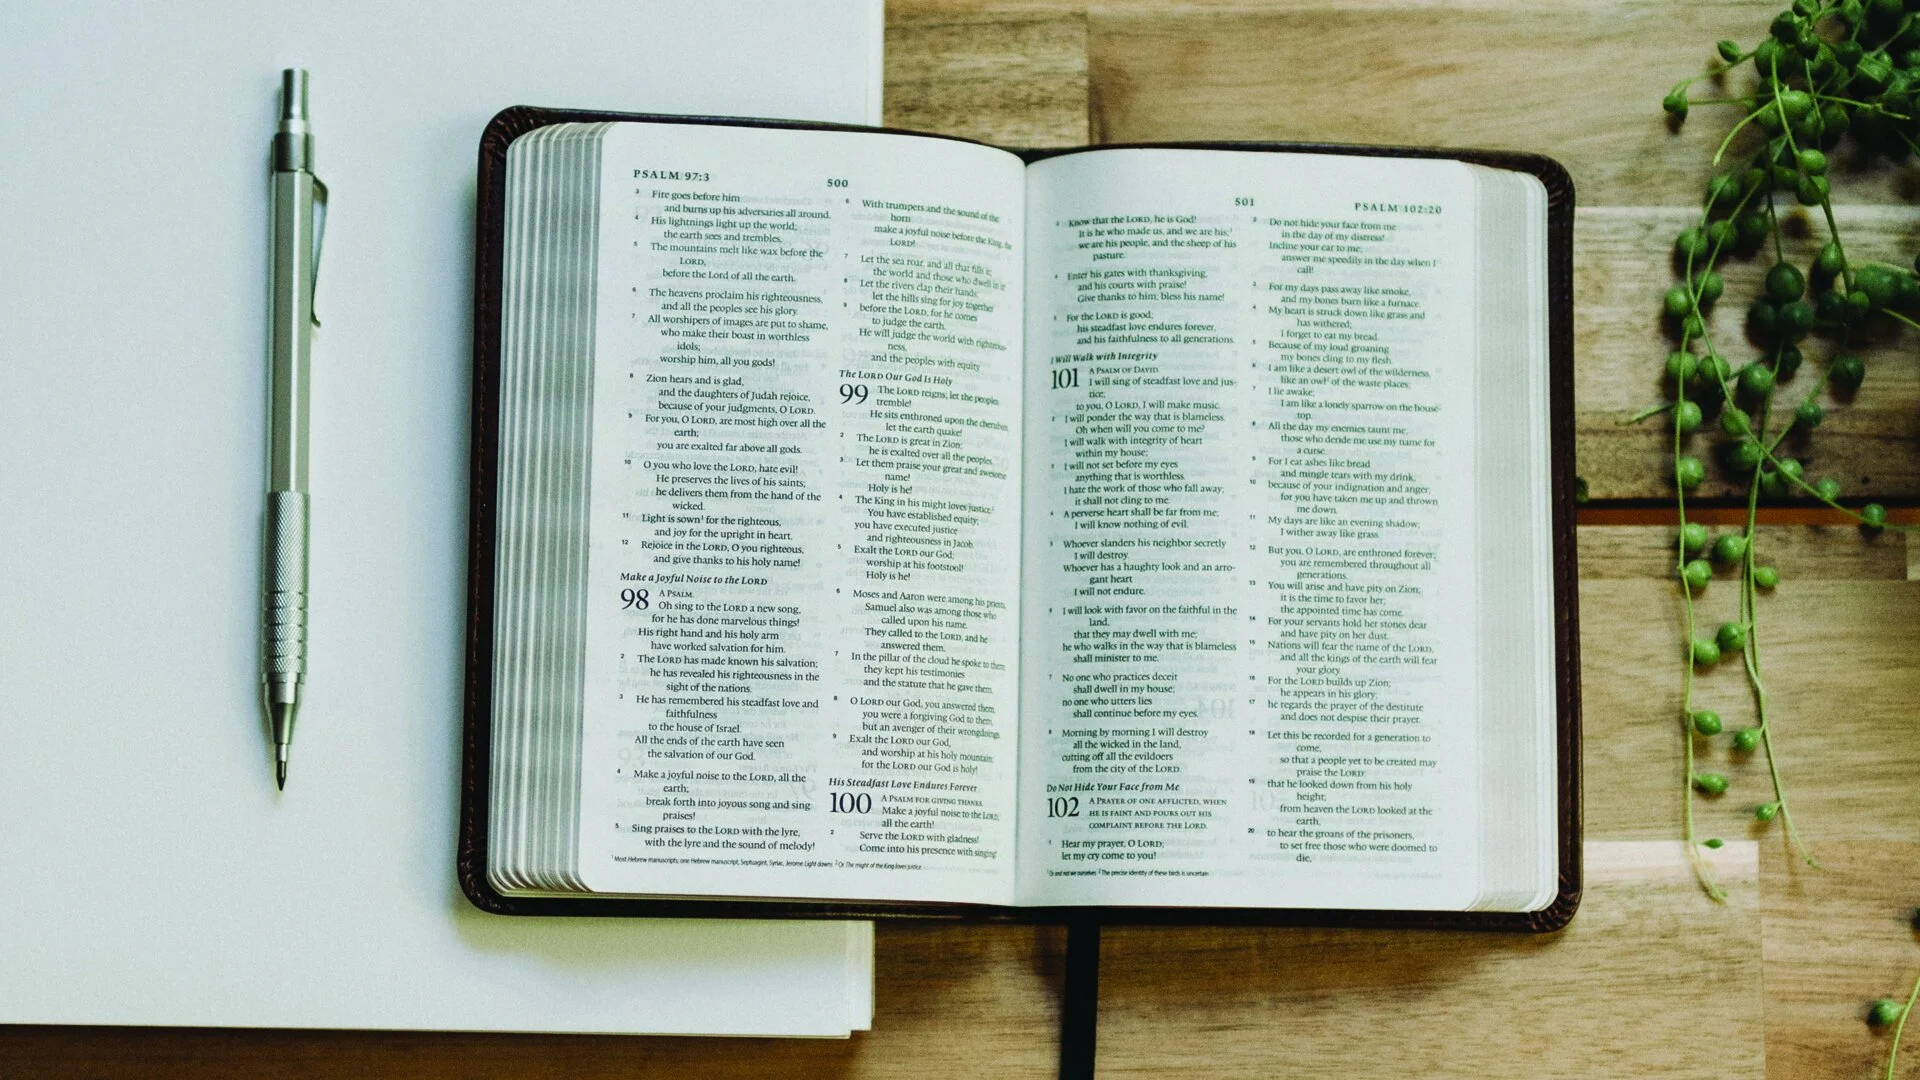 PSALM 97:3
500
3 Fire goes before him
and burns up his adversaries all around.
4 His lightnings light up the world;
the earth sees and trembles.
5 The mountains melt like wax before the
LORD,
before the Lord of all the earth.
6 The heavens proclaim his righteousness,
and all the peoples see his glory.
7 All worshipers of images are put to shame,
who make their boast in worthless
idols;
worship him, all you gods!
8 Zion hears and is glad,
and the daughters of Judah rejoice,
because of your judgments, O LORD.
9 For you, O LORD, are most high over all the
earth;
you are exalted far above all gods.
10 O you who love the LORD, hate evil!
He preserves the lives of his saints;
he delivers them from the hand of the
wicked.
11 Light is sown1 for the righteous,
and joy for the upright in heart.
12 Rejoice in the LORD, O you righteous,
and give thanks to his holy name!
Make a Joyful Noise to the LORD
98 A PSALM.
Oh sing to the LORD a new song,
for he has done marvelous things!
His right hand and his holy arm
have worked salvation for him.
2 The LORD has made known his salvation;
he has revealed his righteousness in the
sight of the nations.
3 He has remembered his steadfast love and
faithfulness
to the house of Israel.
All the ends of the earth have seen
the salvation of our God.
4 Make a joyful noise to the LORD, all the
earth;
break forth into joyous song and sing
praises!
5 Sing praises to the LORD with the lyre,
with the lyre and the sound of melody!
6 With trumpets and the sound of the
horn
make a joyful noise before the King, the
LORD!
7 Let the sea roar, and all that fills it;
the world and those who dwell in it
8 Let the rivers clap their hands;
let the hills sing for joy together
9 before the LORD, for he comes
to judge the earth.
He will judge the world with righteous-
ness,
and the peoples with equity
The LORD Our God Is Holy
99 The LORD reigns; let the peoples
tremble!
He sits enthroned upon the cherubim;
let the earth quake!
2 The LORD is great in Zion;
he is exalted over all the peoples.
3 Let them praise your great and awesome
name!
Holy is he!
4 The King in his might loves justice.2
You have established equity;
you have executed justice
and righteousness in Jacob.
5 Exalt the LORD our God;
worship at his footstool!
Holy is he!
6 Moses and Aaron were among his priests,
Samuel also was among those who
called upon his name.
They called to the LORD, and he
answered them.
7 In the pillar of the cloud he spoke to them;
they kept his testimonies
and the statute that he gave them.
8 O LORD our God, you answered them;
you were a forgiving God to them,
but an avenger of their wrongdoings.
9 Exalt the LORD our God,
and worship at his holy mountain;
for the LORD our God is holy!
His Steadfast Love Endures Forever
100 A PSALM FOR GIVING THANKS.
Make a joyful noise to the LORD,
all the earth!
2 Serve the LORD with gladness!
Come into his presence with singing!
1 Most Hebrew manuscripts; one Hebrew manuscript, Septuagint, Syriac, Jerome Light dawns 2 Or The might of the King loves justice
501
PSALM 102:20
3 Know that the LORD, he is God!
It is he who made us, and we are his;1
we are his people, and the sheep of his
pasture.
4 Enter his gates with thanksgiving,
and his courts with praise!
Give thanks to him; bless his name!
5 For the LORD is good;
his steadfast love endures forever,
and his faithfulness to all generations.
I Will Walk with Integrity
101 A PSALM OF DAVID.
I will sing of steadfast love and jus-
tice;
to you, O LORD, I will make music.
2 I will ponder the way that is blameless.
Oh when will you come to me?
I will walk with integrity of heart
within my house;
3 I will not set before my eyes
anything that is worthless.
I hate the work of those who fall away;
it shall not cling to me.
4 A perverse heart shall be far from me;
I will know nothing of evil.
5 Whoever slanders his neighbor secretly
I will destroy.
Whoever has a haughty look and an arro-
gant heart
I will not endure.
6 I will look with favor on the faithful in the
land,
that they may dwell with me;
he who walks in the way that is blameless
shall minister to me.
7 No one who practices deceit
shall dwell in my house;
no one who utters lies
shall continue before my eyes.
8 Morning by morning I will destroy
all the wicked in the land,
cutting off all the evildoers
from the city of the LORD.
Do Not Hide Your Face from Me
102 A PRAYER OF ONE AFFLICTED, WHEN
HE IS FAINT AND POURS OUT HIS
COMPLAINT BEFORE THE LORD.
1 Hear my prayer, O LORD;
let my cry come to you!
2 Do not hide your face from me
in the day of my distress!
Incline your ear to me;
answer me speedily in the day when I
call!
3 For my days pass away like smoke,
and my bones burn like a furnace.
4 My heart is struck down like grass and
has withered;
I forget to eat my bread.
5 Because of my loud groaning
my bones cling to my flesh.
6 I am like a desert owl of the wilderness,
like an owl2 of the waste places;
7 I lie awake;
I am like a lonely sparrow on the house-
top.
8 All the day my enemies taunt me;
those who deride me use my name for
a curse.
9 For I eat ashes like bread
and mingle tears with my drink,
10 because of your indignation and anger;
for you have taken me up and thrown
me down.
11 My days are like an evening shadow;
I wither away like grass.
12 But you, O LORD, are enthroned forever;
you are remembered throughout all
generations.
13 You will arise and have pity on Zion;
it is the time to favor her;
the appointed time has come.
14 For your servants hold her stones dear
and have pity on her dust.
15 Nations will fear the name of the LORD,
and all the kings of the earth will fear
your glory.
16 For the LORD builds up Zion;
he appears in his glory;
17 he regards the prayer of the destitute
and does not despise their prayer.
18 Let this be recorded for a generation to
come,
so that a people yet to be created may
praise the LORD:
19 that he looked down from his holy
height;
from heaven the LORD looked at the
earth,
20 to hear the groans of the prisoners,
to set free those who were doomed to
die,
1 Or and not we ourselves 2 The precise identity of these birds is uncertain